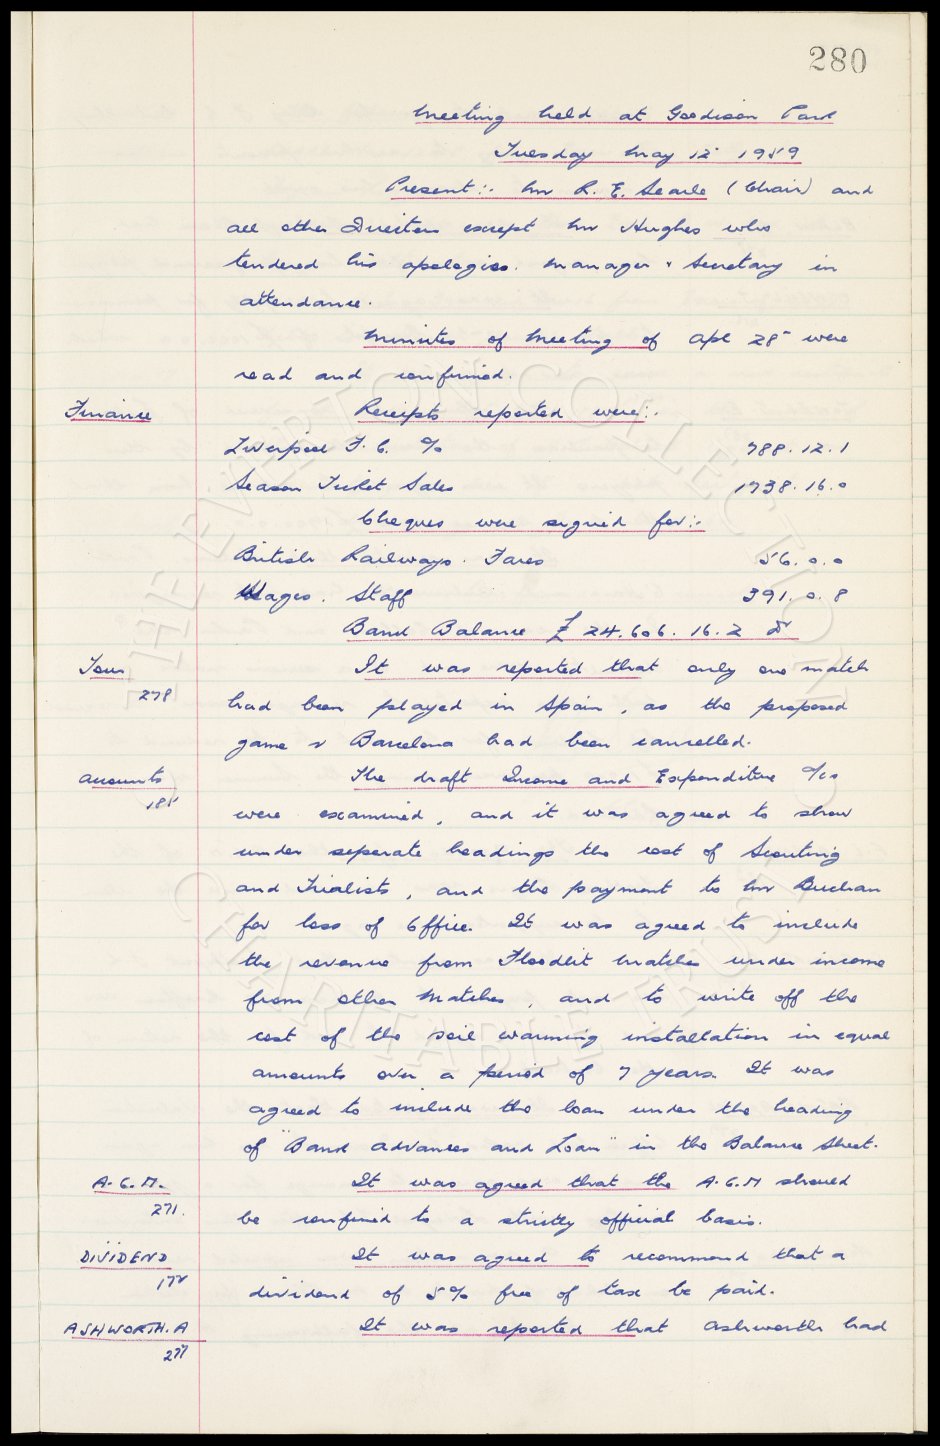 280
Meeting held at Goodison Park
Tuesday May 12 1959
Present:- Mr R. E. Searle (Chair) and
all other Directors except Mr Hughes who
tendered his apologies. Manager & Secretary in
attendance.
Minutes of Meeting of Apl 28 were
read and confirmed.
Finance Receipts reported were:-
Liverpool F. C. %  788. 12. 1
Season Ticket Sales 1738. 16. 0
Cheques were signed for:-
British Railways. Fares 56. 0. 0
Wages. Staff 391. 0. 8
Bank Balance £ 24.606. 16. 2 dr
Tour It was reported that only one match
278 had been played in Spain, as the proposed
game v Barcelona had been cancelled.
Accounts The draft Income and Expenditure a/cs
185 were examined, and it was agreed to show
under seperate headings the cost of Scouting
and Trialists, and the payment to Mr Buchan
for loss of Office. It was agreed to include
the revenue from Floodlit Matches under income
from other Matches, and to write off the
cost of the soil warming installation in equal
amounts over a period of 7 years. It was
agreed to include the loan under the heading
of "Bank Advances and Loan" in the Balance Sheet.
A. G. M. It was agreed that the A. G. M should
271. be confined to a strictly official basis.
DIVIDEND It was agreed to recommend that a
172 dividend of 5% free of tax be paid.
ASHWORTH. A It was reported that Ashworth had
277
THE EVERTON COLLECTION
CHARITABLE TRUST